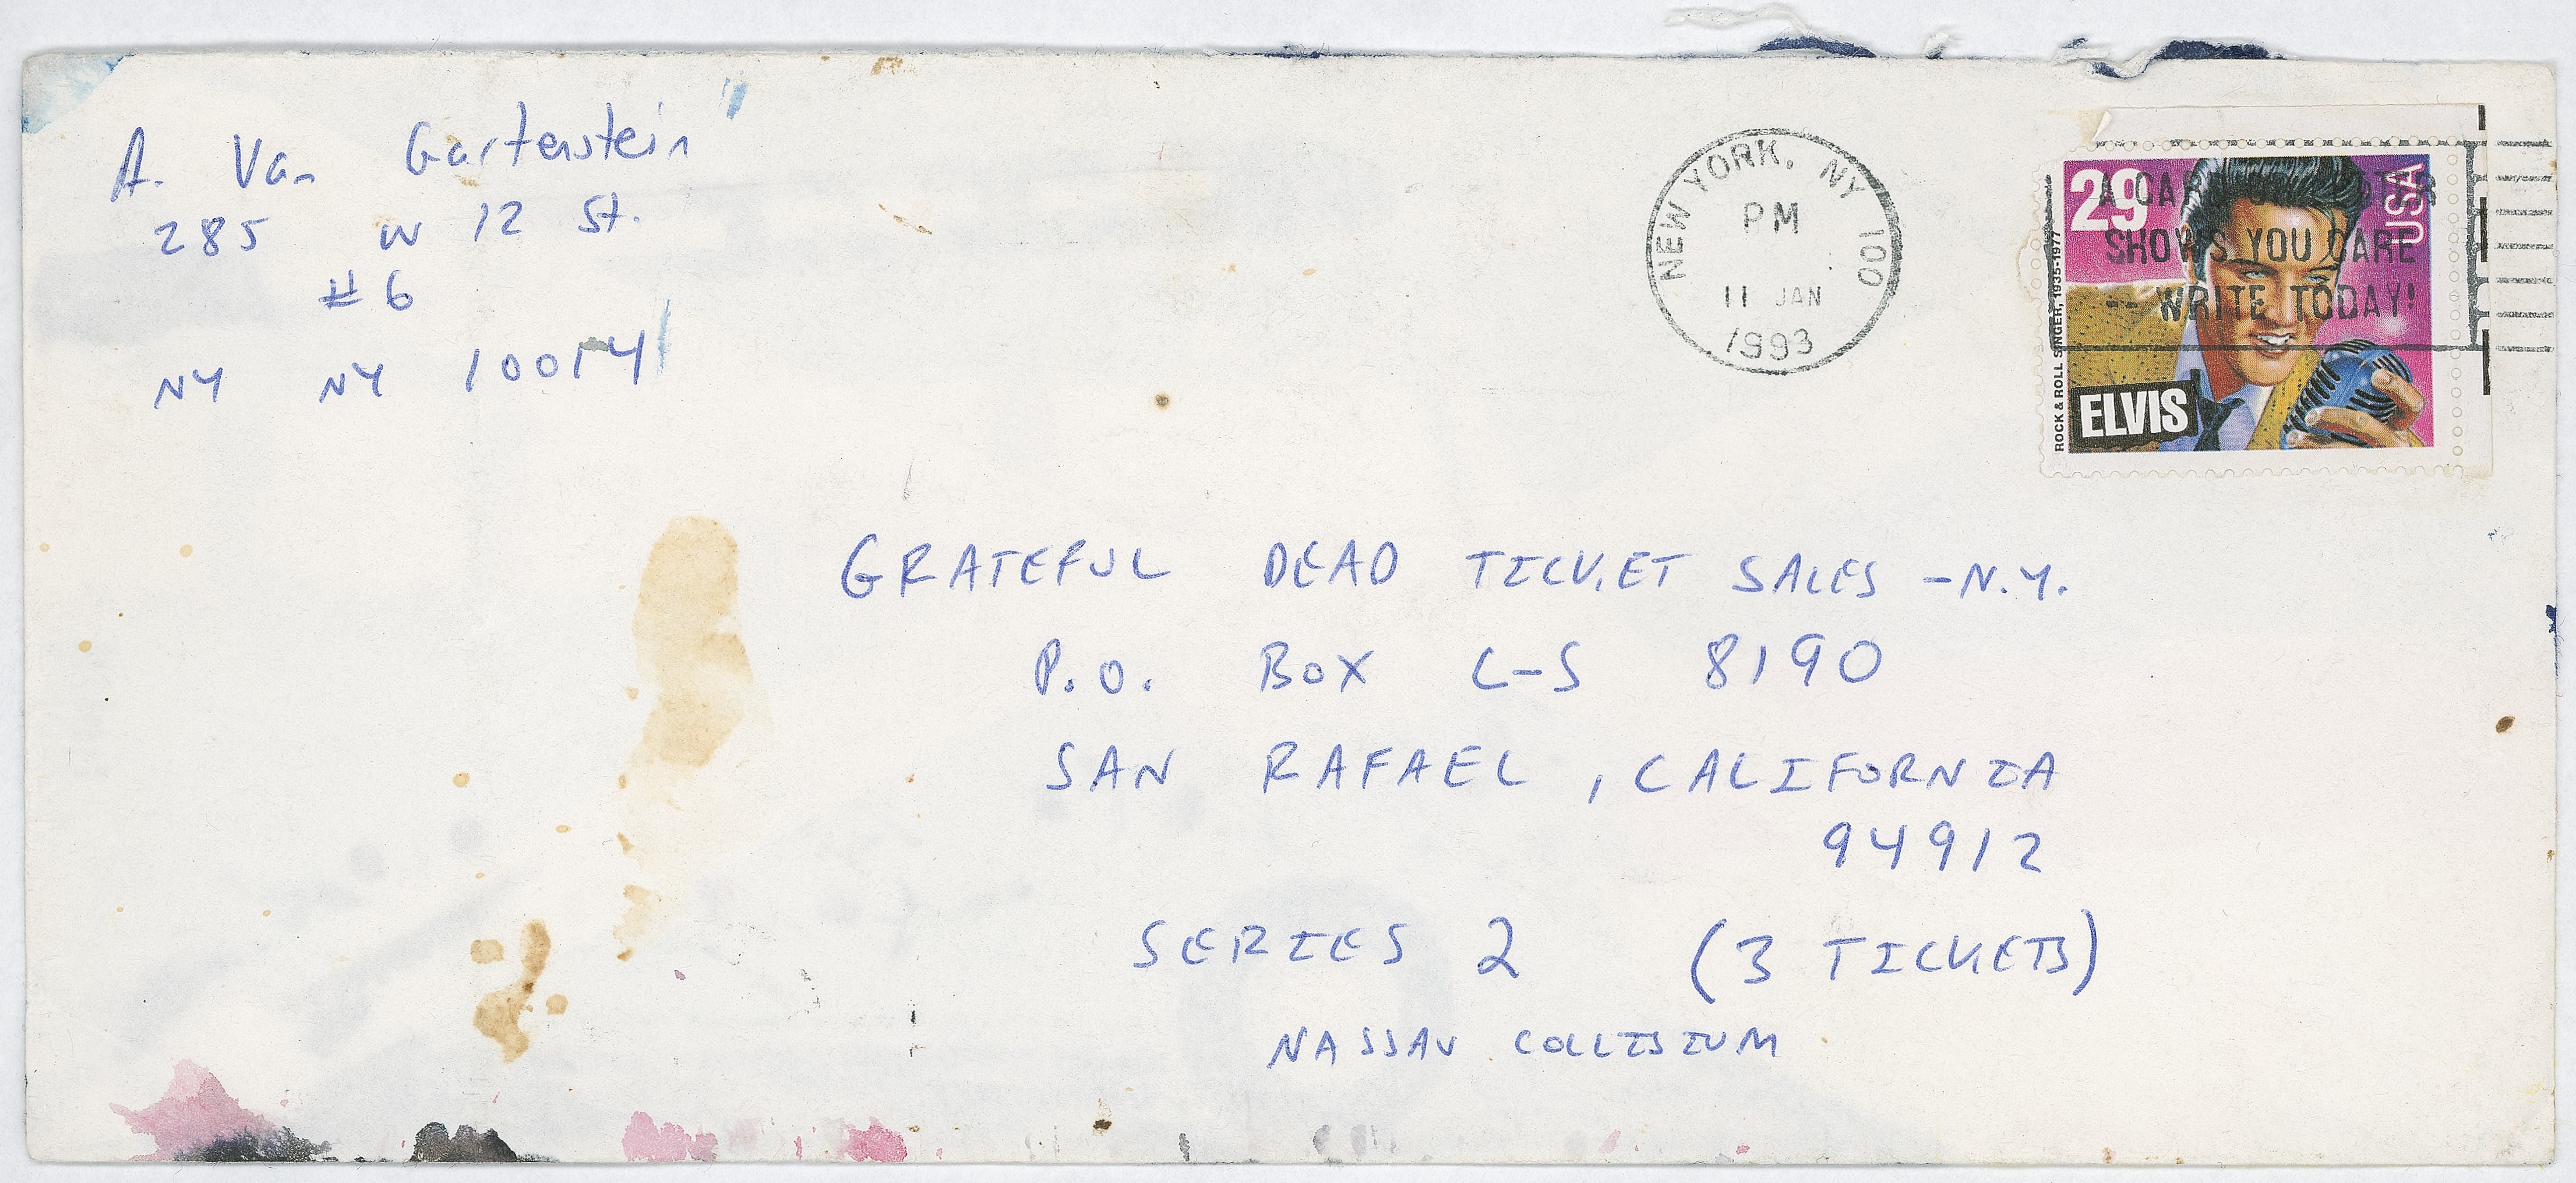 A. Van Gartenstein
285 W 12 St.
#6
NY NY 10014
NEW YORK, NY 100
PM
11 JAN
1993
29
USA
A CARD OR LETTER
SHOWS YOU CARE
-- WRITE TODAY!
ROCK & ROLL SINGER, 1935-1977
ELVIS
GRATEFUL DEAD TICKET SALES - N.Y.
P.O. BOX C-S 8190
SAN RAFAEL, CALIFORNIA
94912
SERIES 2 (3 TICKETS)
NASSAU COLLISIUM